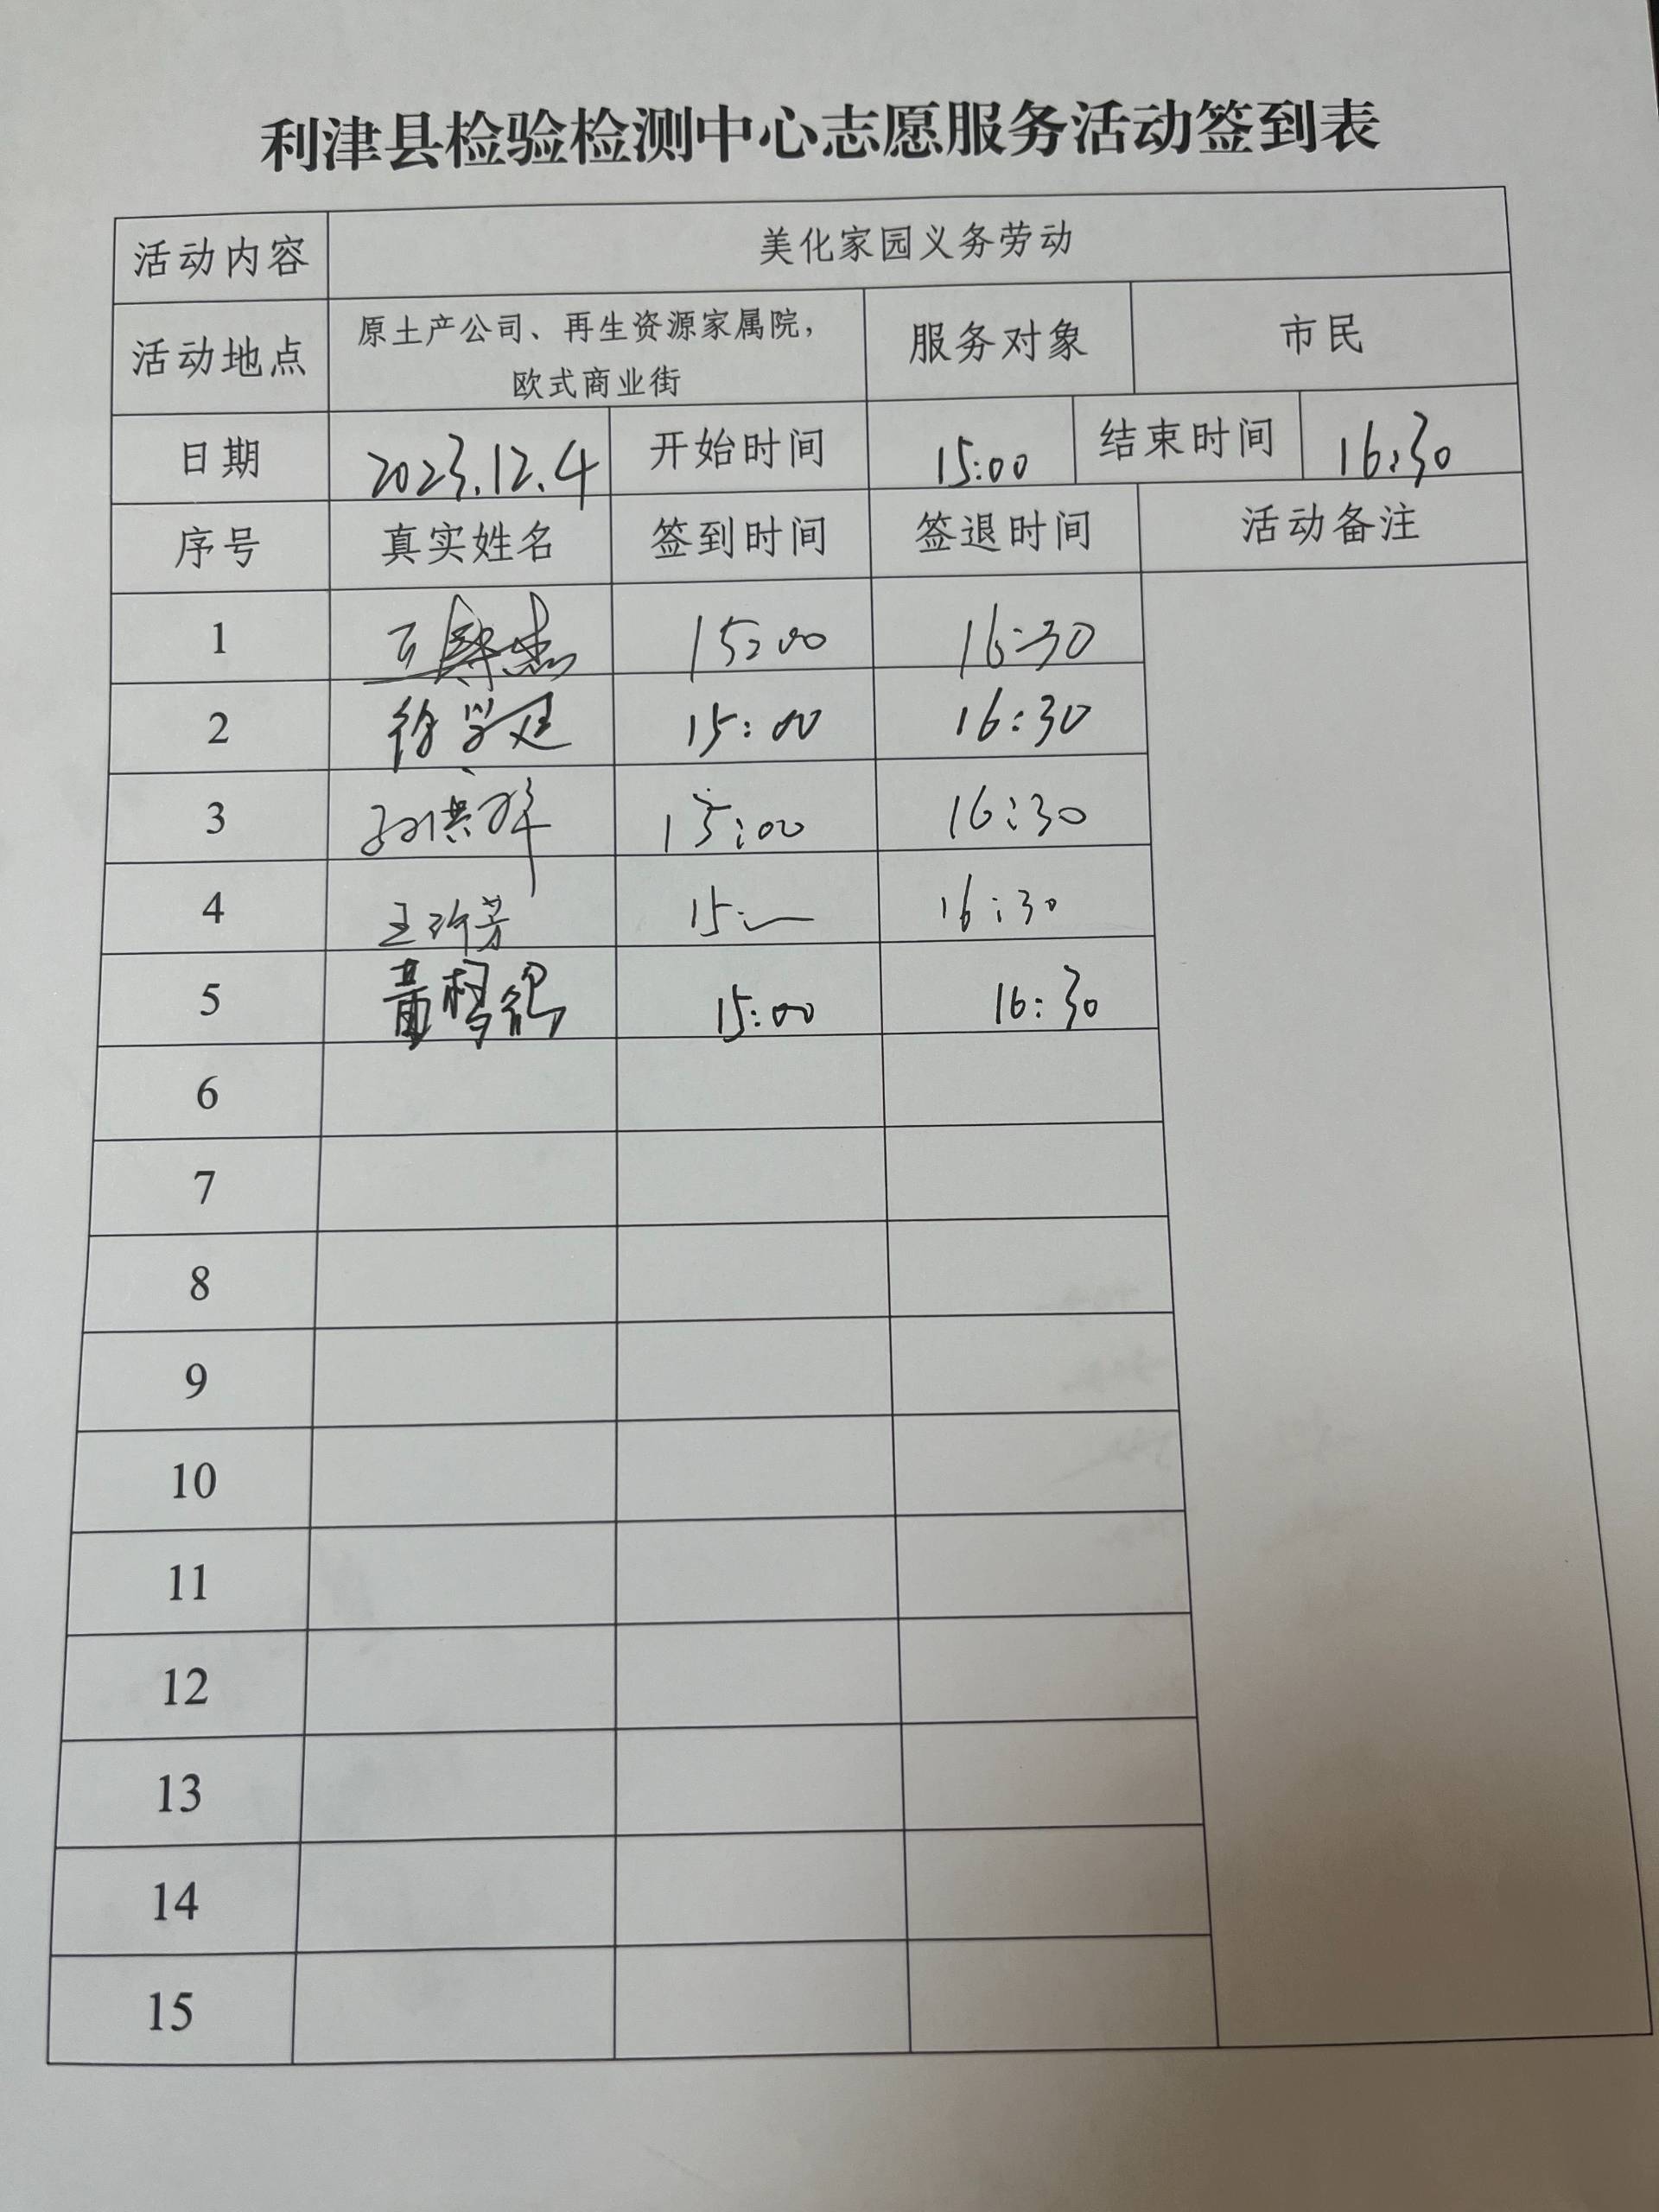 利津县检验检测中心志愿服务活动签到表
活动内容 美化家园义务劳动
活动地点 原土产公司、再生资源家属院，
欧式商业街 服务对象 市民
日期 2023.12.4 开始时间 15:00 结束时间 16:30
序号 真实姓名 签到时间 签退时间 活动备注
1 15:00 16:30
2 徐学廷 15:00 16:30
3 孙洪祥 15:00 16:30
4 15:— 16:30
5 15:00 16:30
6
7
8
9
10
11
12
13
14
15